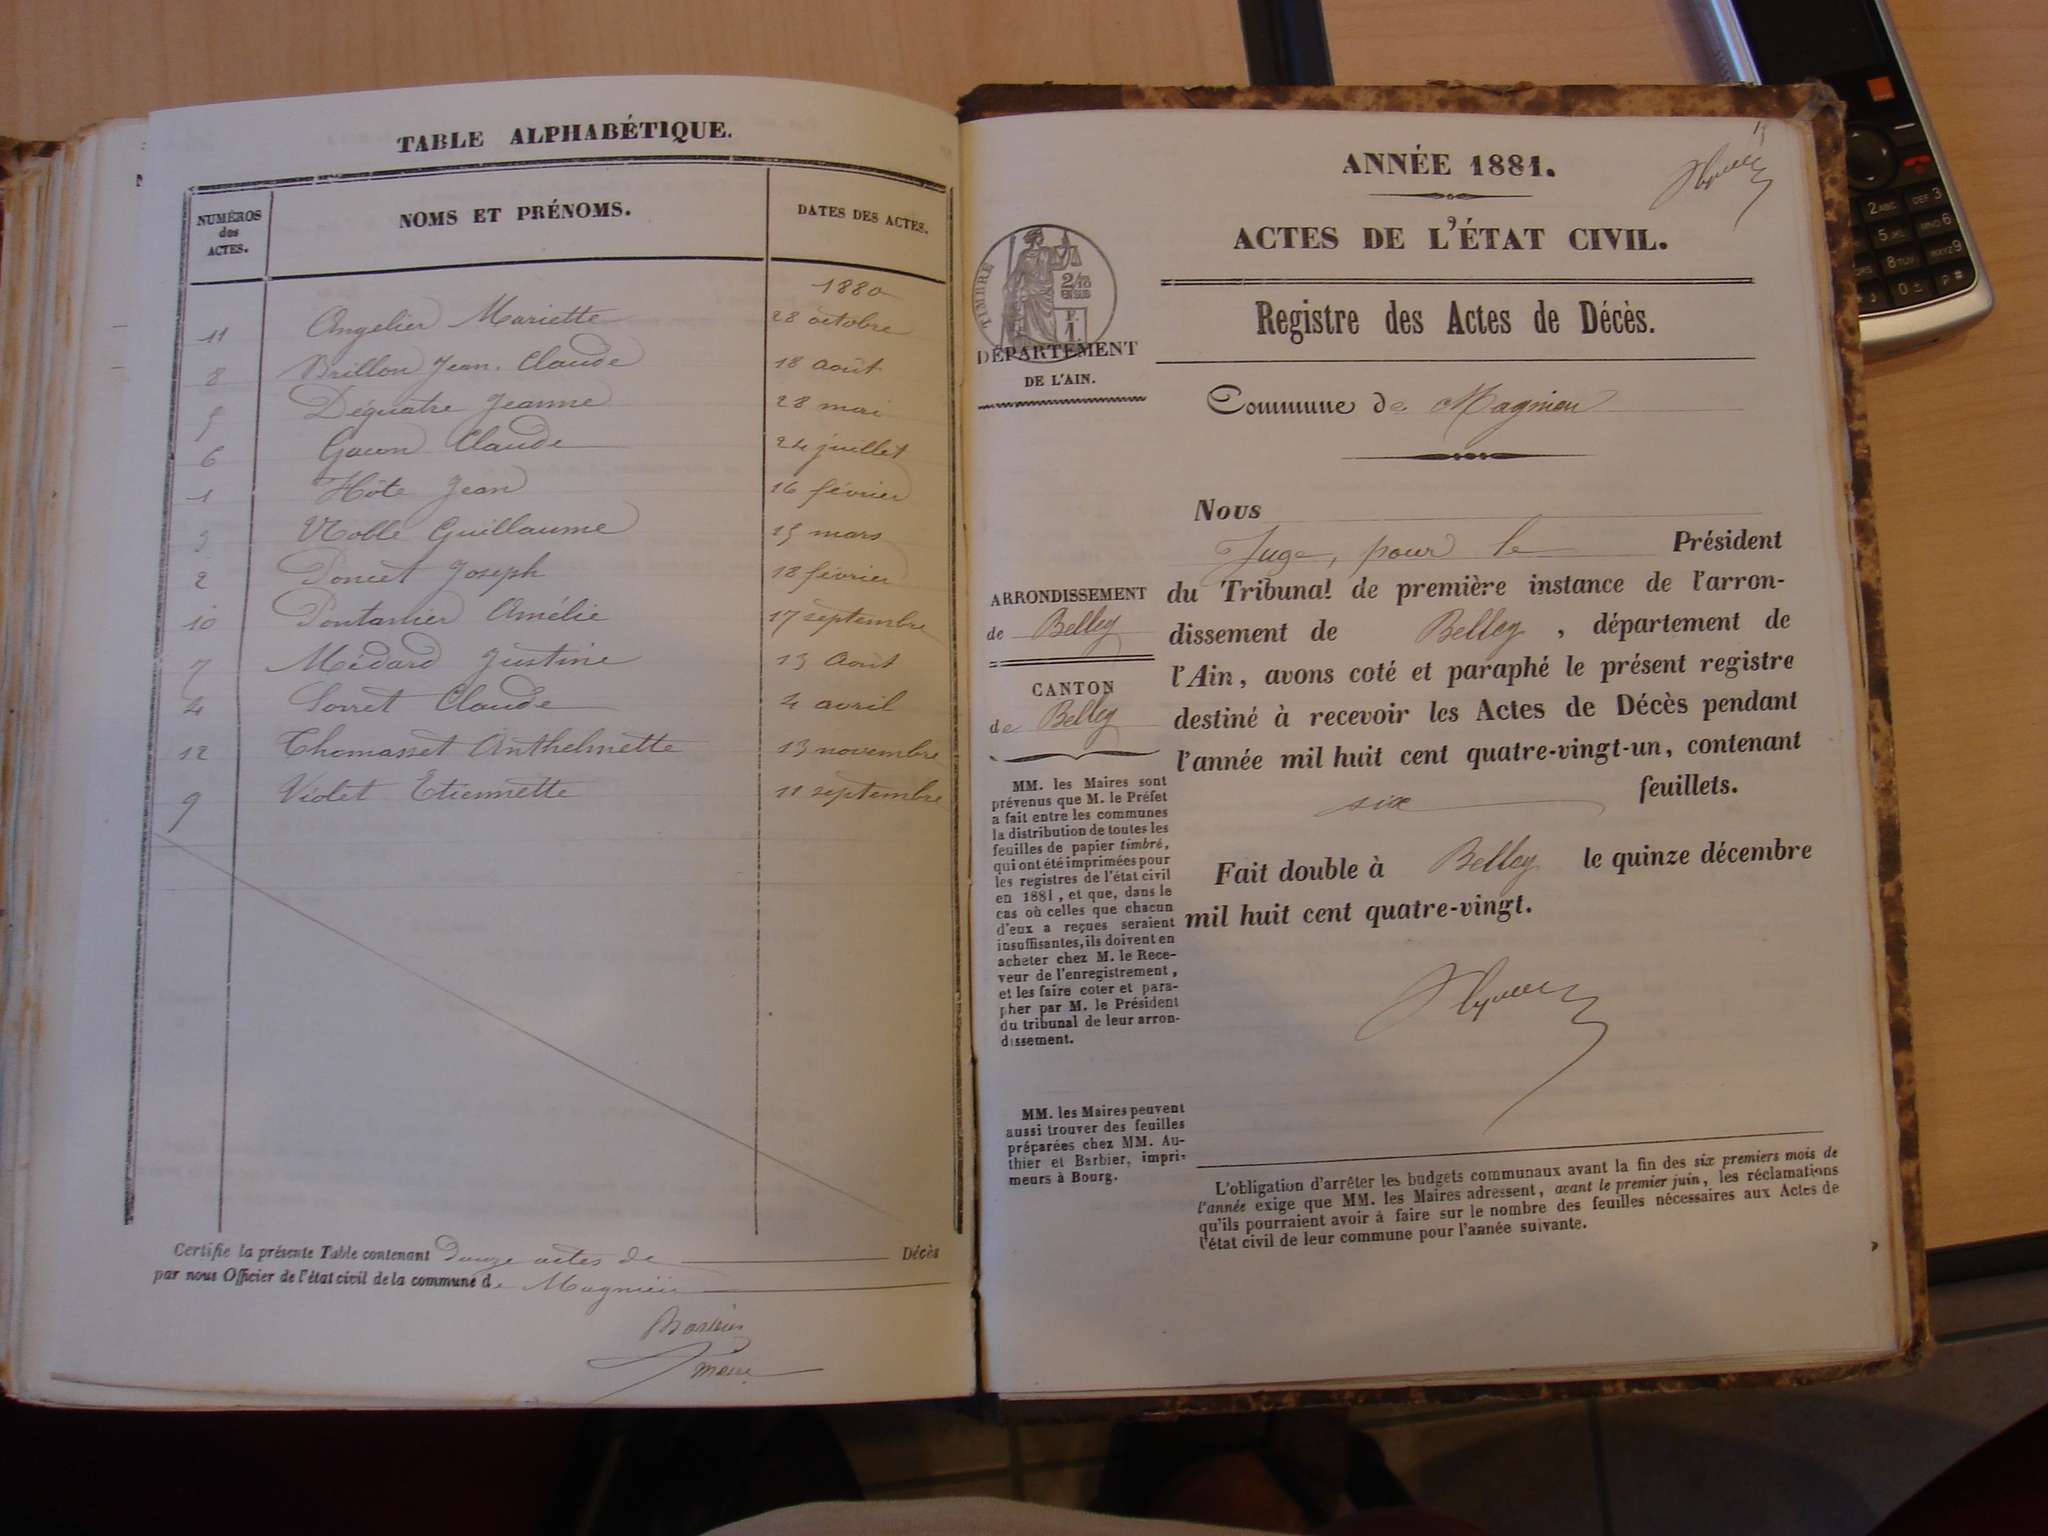 TABLE ALPHABÉTIQUE.
NUMÉROS
des
ACTES.
NOMS ET PRÉNOMS.
DATES DES ACTES.
1880
11 Angelier Mariette 28 octobre
8 Brillon Jean Claude 18 août
5 Déquatre Jeanne 28 mai
6 Gacon Claude 24 juillet
1 Hôte Jean 16 février
3 Noble Guillaume 15 mars
2 Poncet Joseph 18 février
10 Pontarlier Amélie 17 septembre
7 Médard Justine 13 Août
4 Sorret Claude 4 avril
12 Thomasset Anthelmette 13 novembre
9 Violet Etiennette 11 septembre
Certifie la présente Table contenant Douze actes de Décès
par nous Officier de l'état civil de la commune de Magnieu
maire
ANNÉE 1881.
ACTES DE L'ÉTAT CIVIL.
TIMBRE
2/10
EN SUS
F.
1.
Registre des Actes de Décès.
DÉPARTEMENT
DE L'AIN.
Commune de Magnieu
Nous
Juge, pour le Président
du Tribunal de première instance de l'arron-
dissement de Belley, département de
l'Ain, avons coté et paraphé le présent registre
destiné à recevoir les Actes de Décès pendant
l'année mil huit cent quatre-vingt-un, contenant
six feuillets.
Fait double à Belley le quinze décembre
mil huit cent quatre-vingt.
ARRONDISSEMENT
de Belley
CANTON
de Belley
MM. les Maires sont
prévenus que M. le Préfet
a fait entre les communes
la distribution de toutes les
feuilles de papier timbré,
qui ont été imprimées pour
les registres de l'état civil
en 1881, et que, dans le
cas où celles que chacun
d'eux a reçues seraient
insuffisantes, ils doivent en
acheter chez M. le Rece-
veur de l'enregistrement,
et les faire coter et para-
pher par M. le Président
du tribunal de leur arron-
dissement.
MM. les Maires peuvent
aussi trouver des feuilles
préparées chez MM. Au-
thier et Barbier, impri-
meurs à Bourg.
L'obligation d'arrêter les budgets communaux avant la fin des six premiers mois de
l'année exige que MM. les Maires adressent, avant le premier juin, les réclamations
qu'ils pourraient avoir à faire sur le nombre des feuilles nécessaires aux Actes de
l'état civil de leur commune pour l'année suivante.
2ABC
DEF 3
5JKL
MNO6
8TUV
WXYZ9
0
#